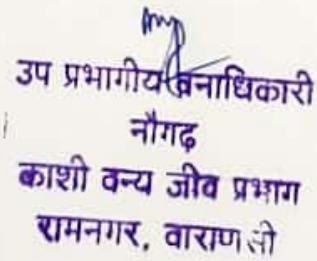 उप प्रभागीय वनाधिकारी
नौगढ़
काशी वन्य जीव प्रभाग
रामनगर, वाराणसी